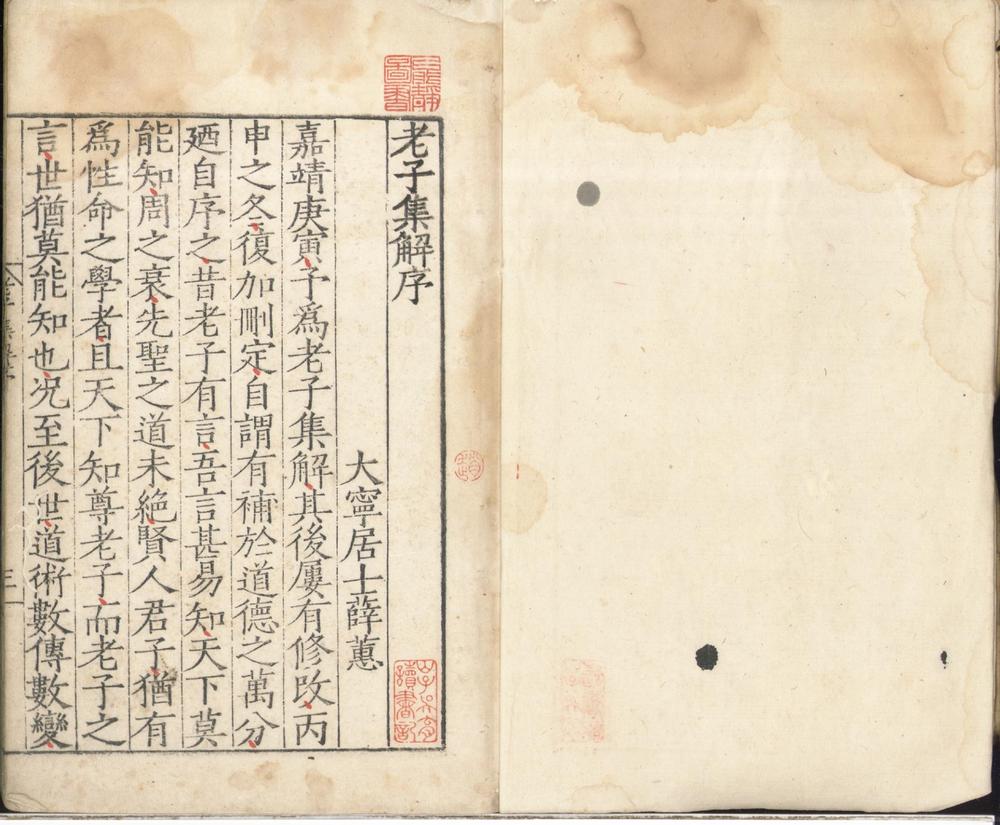 老子集解序
大寧居士薛蕙
嘉靖庚寅予爲老子集解其後屢有修改丙
申之冬復加刪定自謂有補於道德之萬分
廼自序之昔老子有言吾言甚易知天下莫
能知周之衰先聖之道未絶賢人君子猶有
爲性命之學者且天下知尊老子而老子之
言世猶莫能知也况至後世道術數傳數變
三